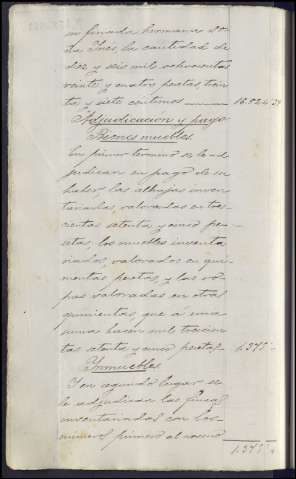 su finada hermana Dª
da Inés, la cantidad de
diez y seis mil ochocientas
veinte y cuatro pesetas, trein
ta y siete céntimos 16.824 37
Adjudicacion y pago
Bienes muebles.
En primer termino se le ad
judican en pago de su
haber, las alhajas inven
tariadas, valoradas en tres
cientas setenta y cinco pe
setas, los muebles inventa
riados, valorados en qui
nientas pesetas, y las ro
pas valoradas en otras
quinientas, que a una
suma hacen mil trescien
tas setenta y cinco pesetas 1.375 "
Inmuebles
Y en segundo lugar se
le adjudican las fincas
inventariadas con los
numeros primero al
1.375 "